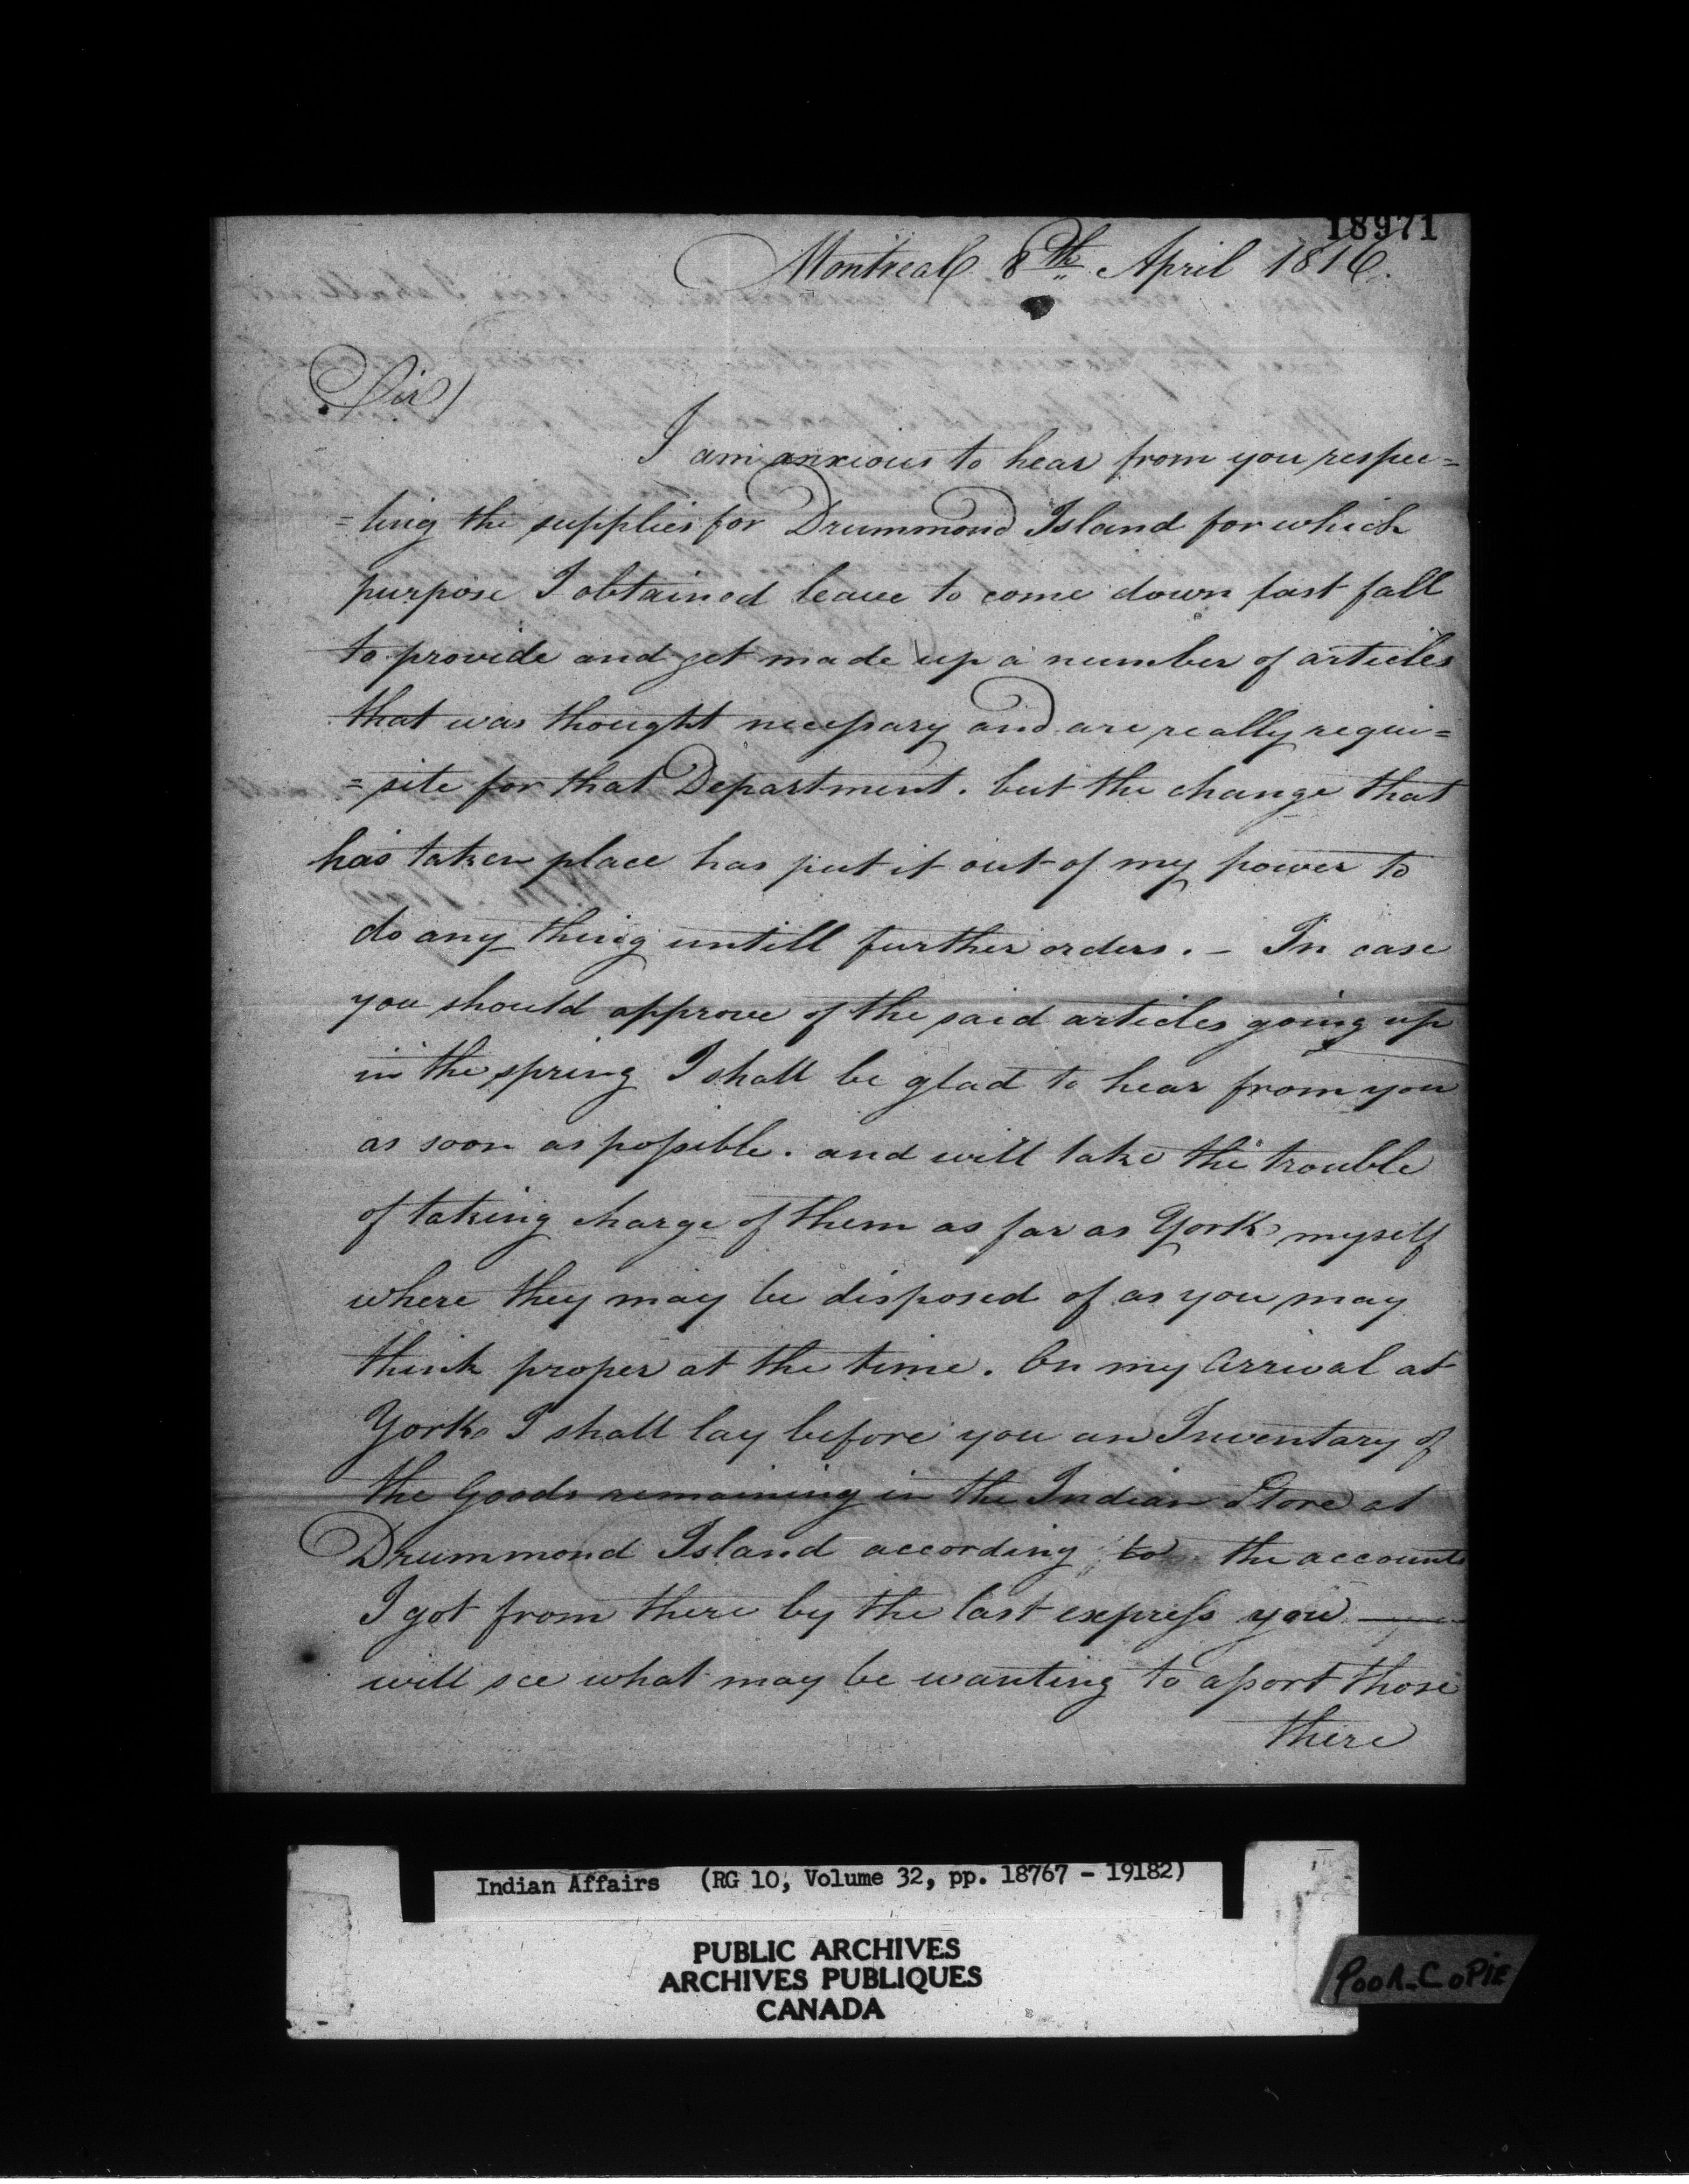 18971
Montreal 8th April 1816.
Sir/
I am anxious to hear from you respec=
=ting the supplies for Drummond Island for which
purpose I obtained leave to come down last fall
to provide and get made up a number of articles
that was thought necessary and are really requi=
=site for that Department. but the change that
has taken place has put it out of my power to
do any thing untill further orders. - In case
you should approve of the said articles going up
in the spring I shall be glad to hear from you
as soon as possible. and will take the trouble
of taking charge of them as far as York myself
where they may be disposed of as you may
think proper at the time. On my Arrival at
York I shall lay before you an Inventary of
the Goods remaining in the Indian Store at
Drummond Island according to the accounts
I got from there by the last express you
will see what may be wanting to assort those
there
Indian Affairs (RG 10, Volume 32, pp. 18767 - 19182)
PUBLIC ARCHIVES
ARCHIVES PUBLIQUES
CANADA
POOR COPIE